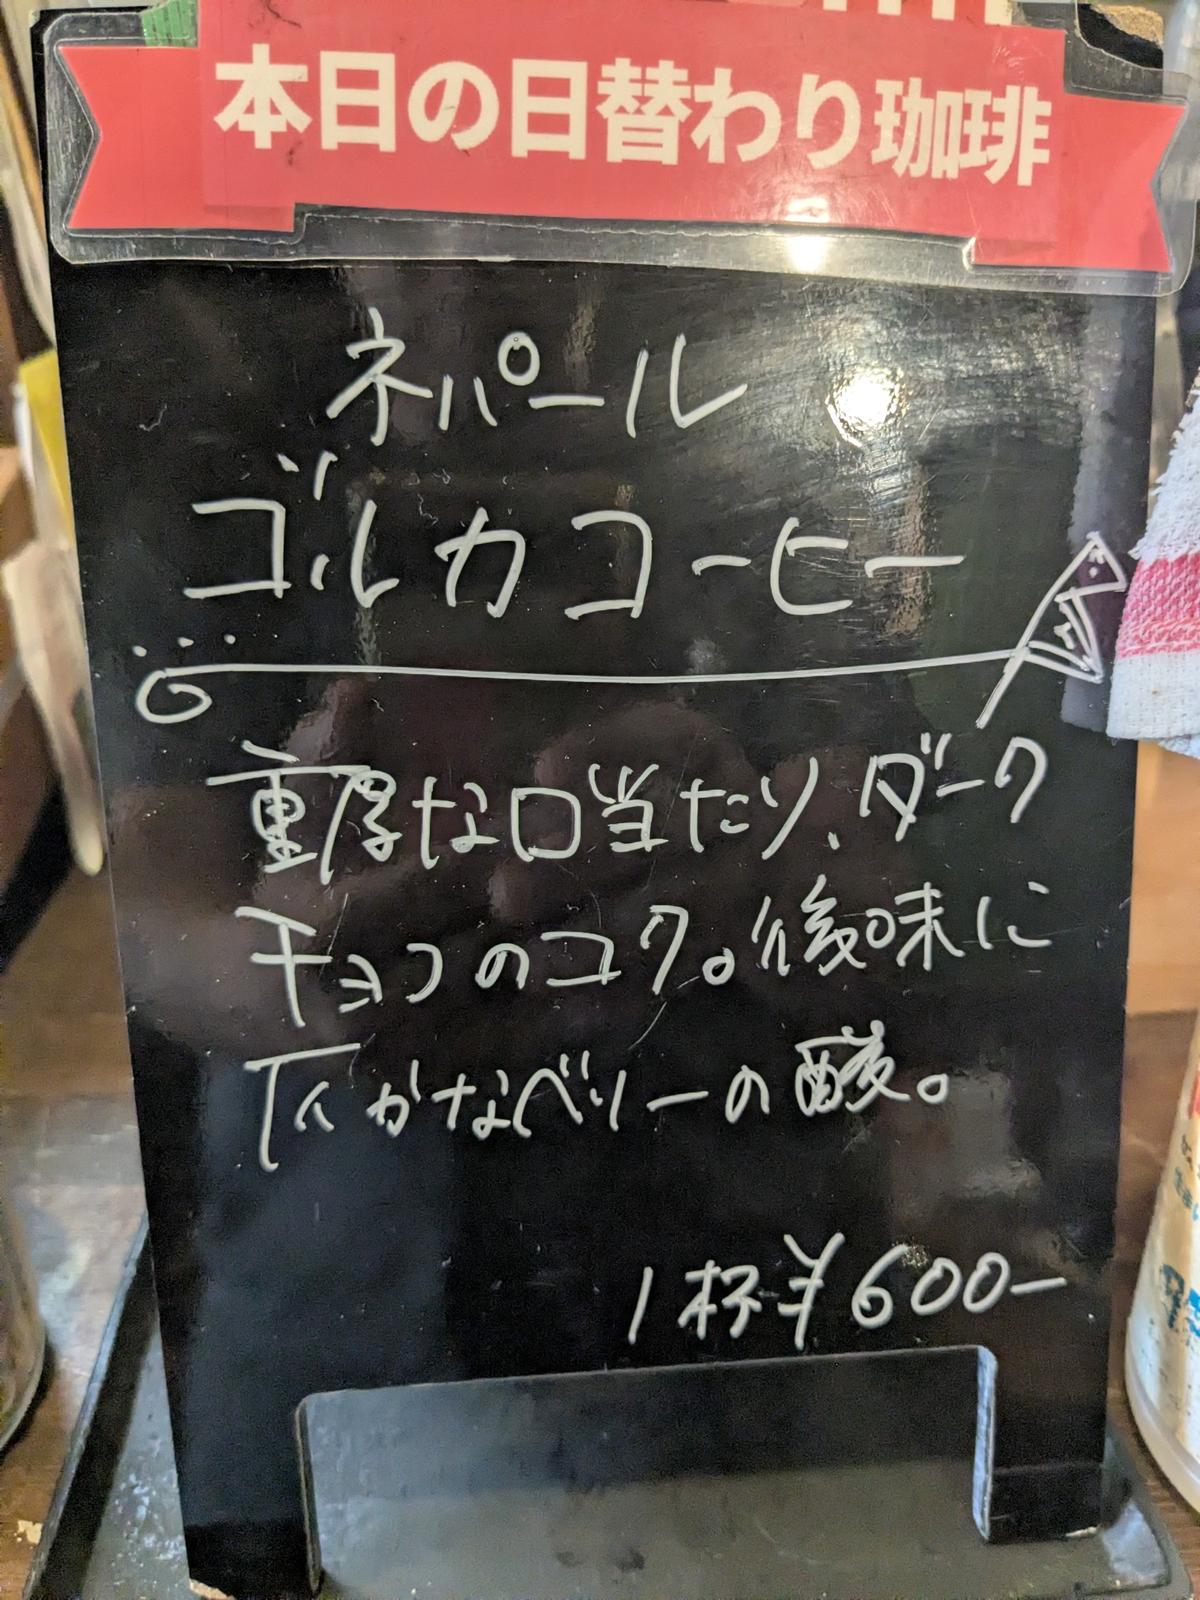 本日の日替わり珈琲
ネパール
ゴルカコーヒー
重厚な口当たり、ダーク
チョコのコク。後味に
仄かなベリーの酸。
1杯¥600-